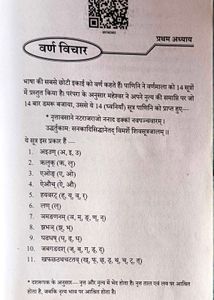 प्रथम अध्याय
वर्ण विचार
भाषा की सबसे छोटी इकाई को वर्ण कहते हैं। पाणिनि ने वर्णमाला को 14 सूत्रों
में प्रस्तुत किया है। परंपरा के अनुसार महेश्वर ने अपने नृत्य की समाप्ति पर जो
14 बार डमरू बजाया, उससे ये 14 (ध्वनियाँ) सूत्र पाणिनि को प्राप्त हुए—
* नृत्तावसाने नटराजराजो ननाद ढक्कां नवपञ्चवारम्।
उद्धर्तुकामः सनकादिसिद्धानेतद् विमर्शे शिवसूत्रजालम्॥
ये सूत्र इस प्रकार हैं —
1. अइउण् (अ, इ, उ)
2. ऋलृक् (ऋ, लृ)
3. एओङ् (ए, ओ)
4. ऐऔच् (ऐ, औ)
5. हयवरट् (ह्, य्, व्, र्)
6. लण् (ल्)
7. ञमङणनम् (ञ्, म्, ङ्, ण्, न्)
8. झभञ् (झ्, भ्)
9. घढधष् (घ्, ढ्, ध्)
10. जबगडदश् (ज्, ब्, ग्, ड्, द्)
11. खफछठथचटतव् (ख्, फ्, छ्, ठ्, थ्, च्, ट्, त्)
* दशरूपक के अनुसार— नृत्त और नृत्य में भेद होता है। नृत्त ताल एवं लय पर आश्रित
होता है, जबकि नृत्य भाव पर आश्रित होता है।